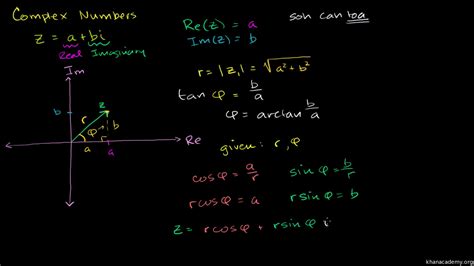 Complex Numbers
z = a + bi
Real Imaginary
Im
b
z
r
φ
b
r
a
a
Re
Re(z) = a
Im(z) = b
soh cah toa
r = |z₁| = √a² + b²
tan φ = b/a
φ = arctan b/a
given: r, φ
cos φ = a/r
sin φ = b/r
r cos φ = a
r sin φ = b
z = r cos φ + r sin φ i
khanacademy.org